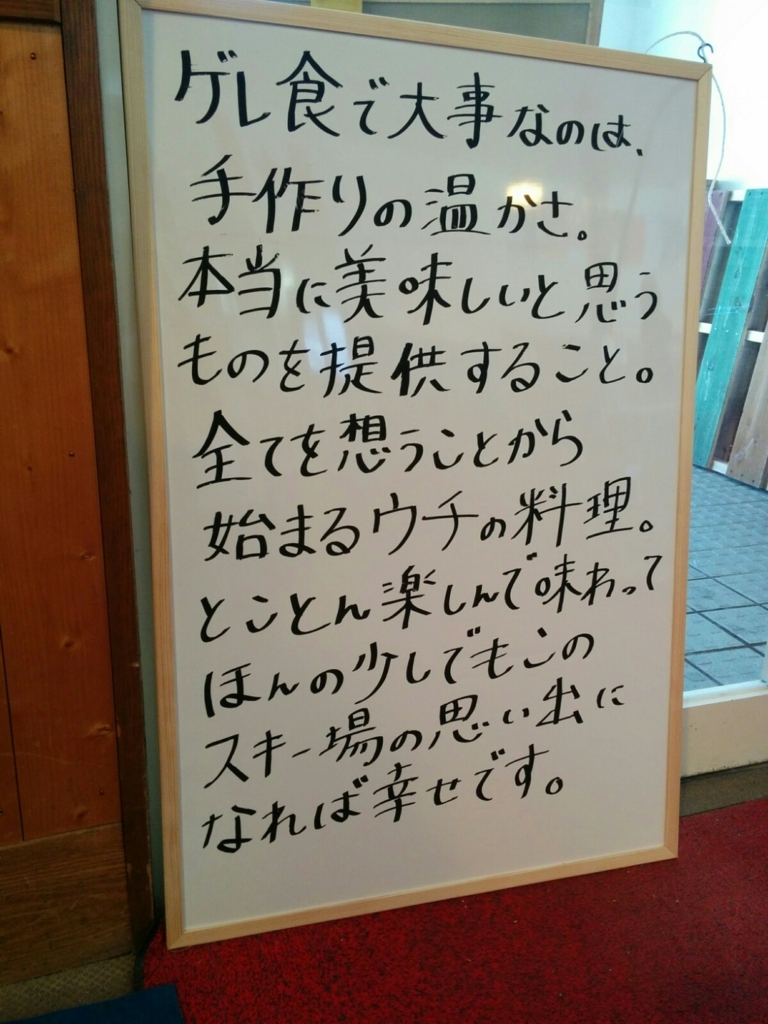 ゲレ食で大事なのは、
手作りの温かさ。
本当に美味しいと思う
ものを提供すること。
全てを想うことから
始まるウチの料理。
とことん楽しんで味わって
ほんの少しでもこの
スキー場の思い出に
なれば幸せです。